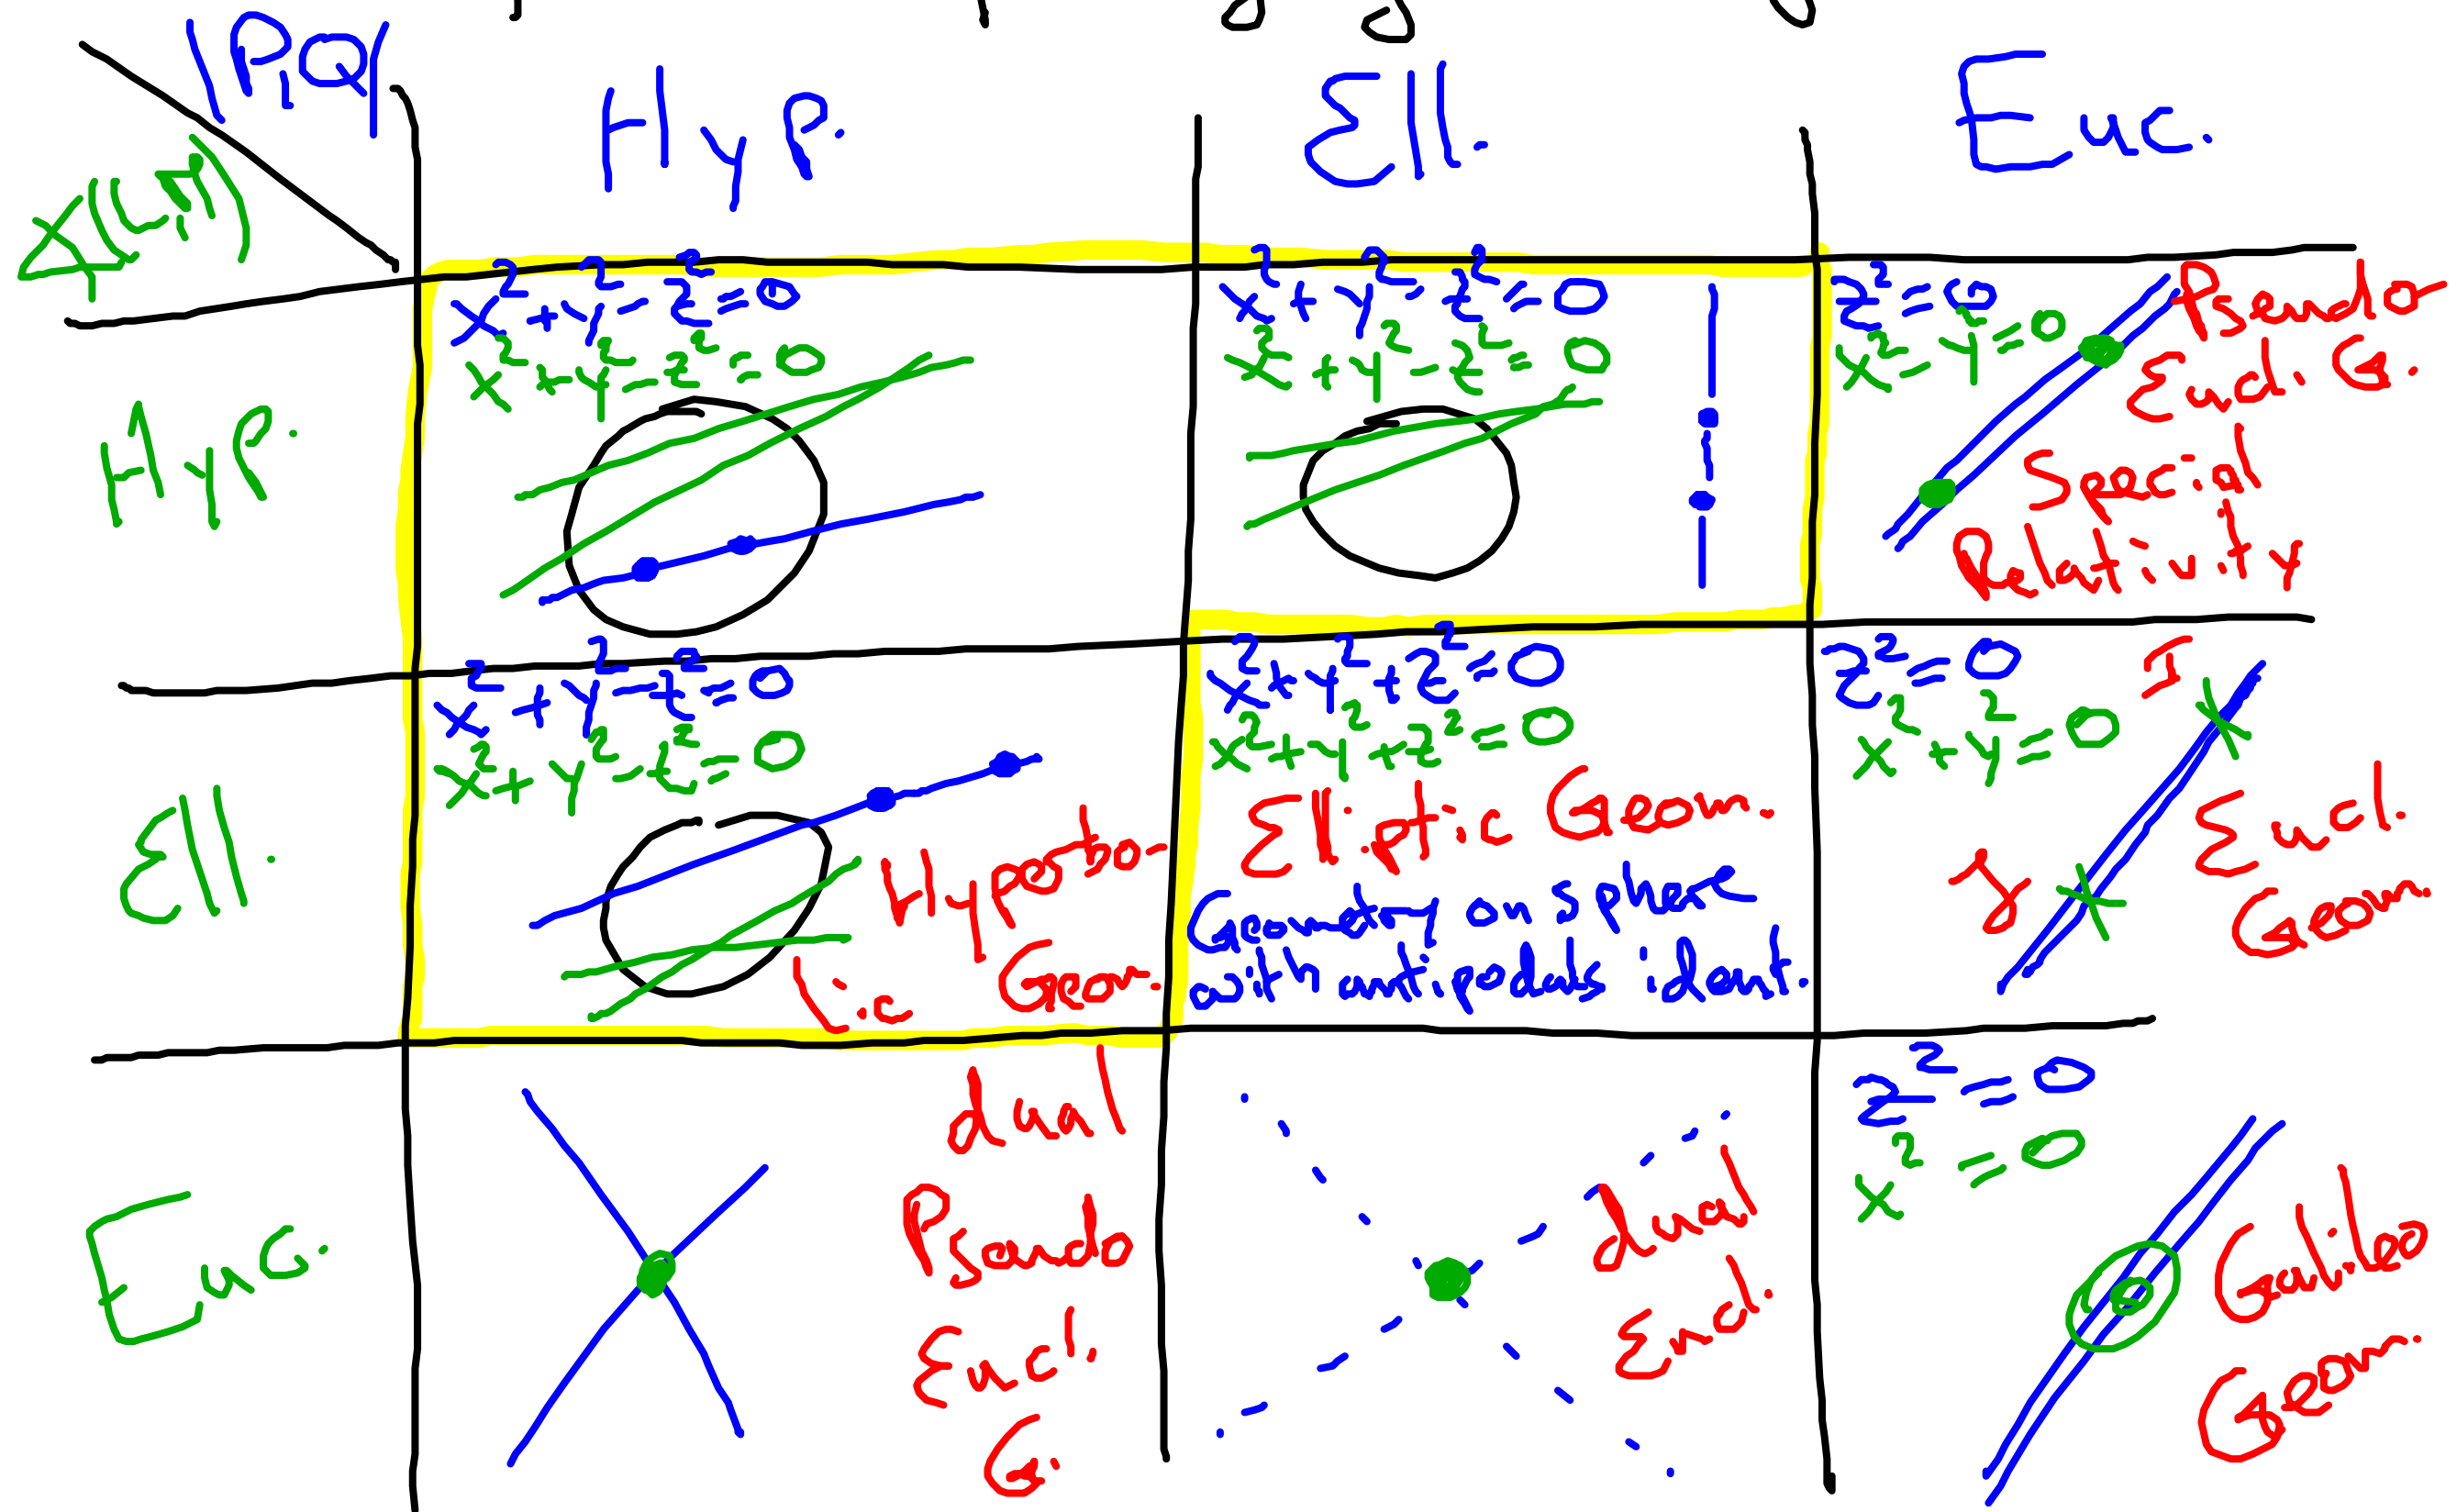 |PQ|
∡(u,v)
Hyp.
Ell.
Euc.
Hyp.
x²+y²-z²=0
x²+y²-z²=0
x²+y²-z²=0
x²+y²-z²=0
z²=0
x²-y²=0
Pseudo
Eucl. G.
Special
Relativity
Ell.
x²+y²+z²=0
x²+y²-z²=0
Hyperbol.
Geom.
x²+y²+z²=0
x²+y²+z²=0
Elliptic Geom.
Cayley
z²=0
x²+y²=0
I
J
Eucl.
Geom.
Euc.
dual
Pseudo
Eucl.
G.
dual
Eucl.
z²=0
x²=0
Galilei
Geom.